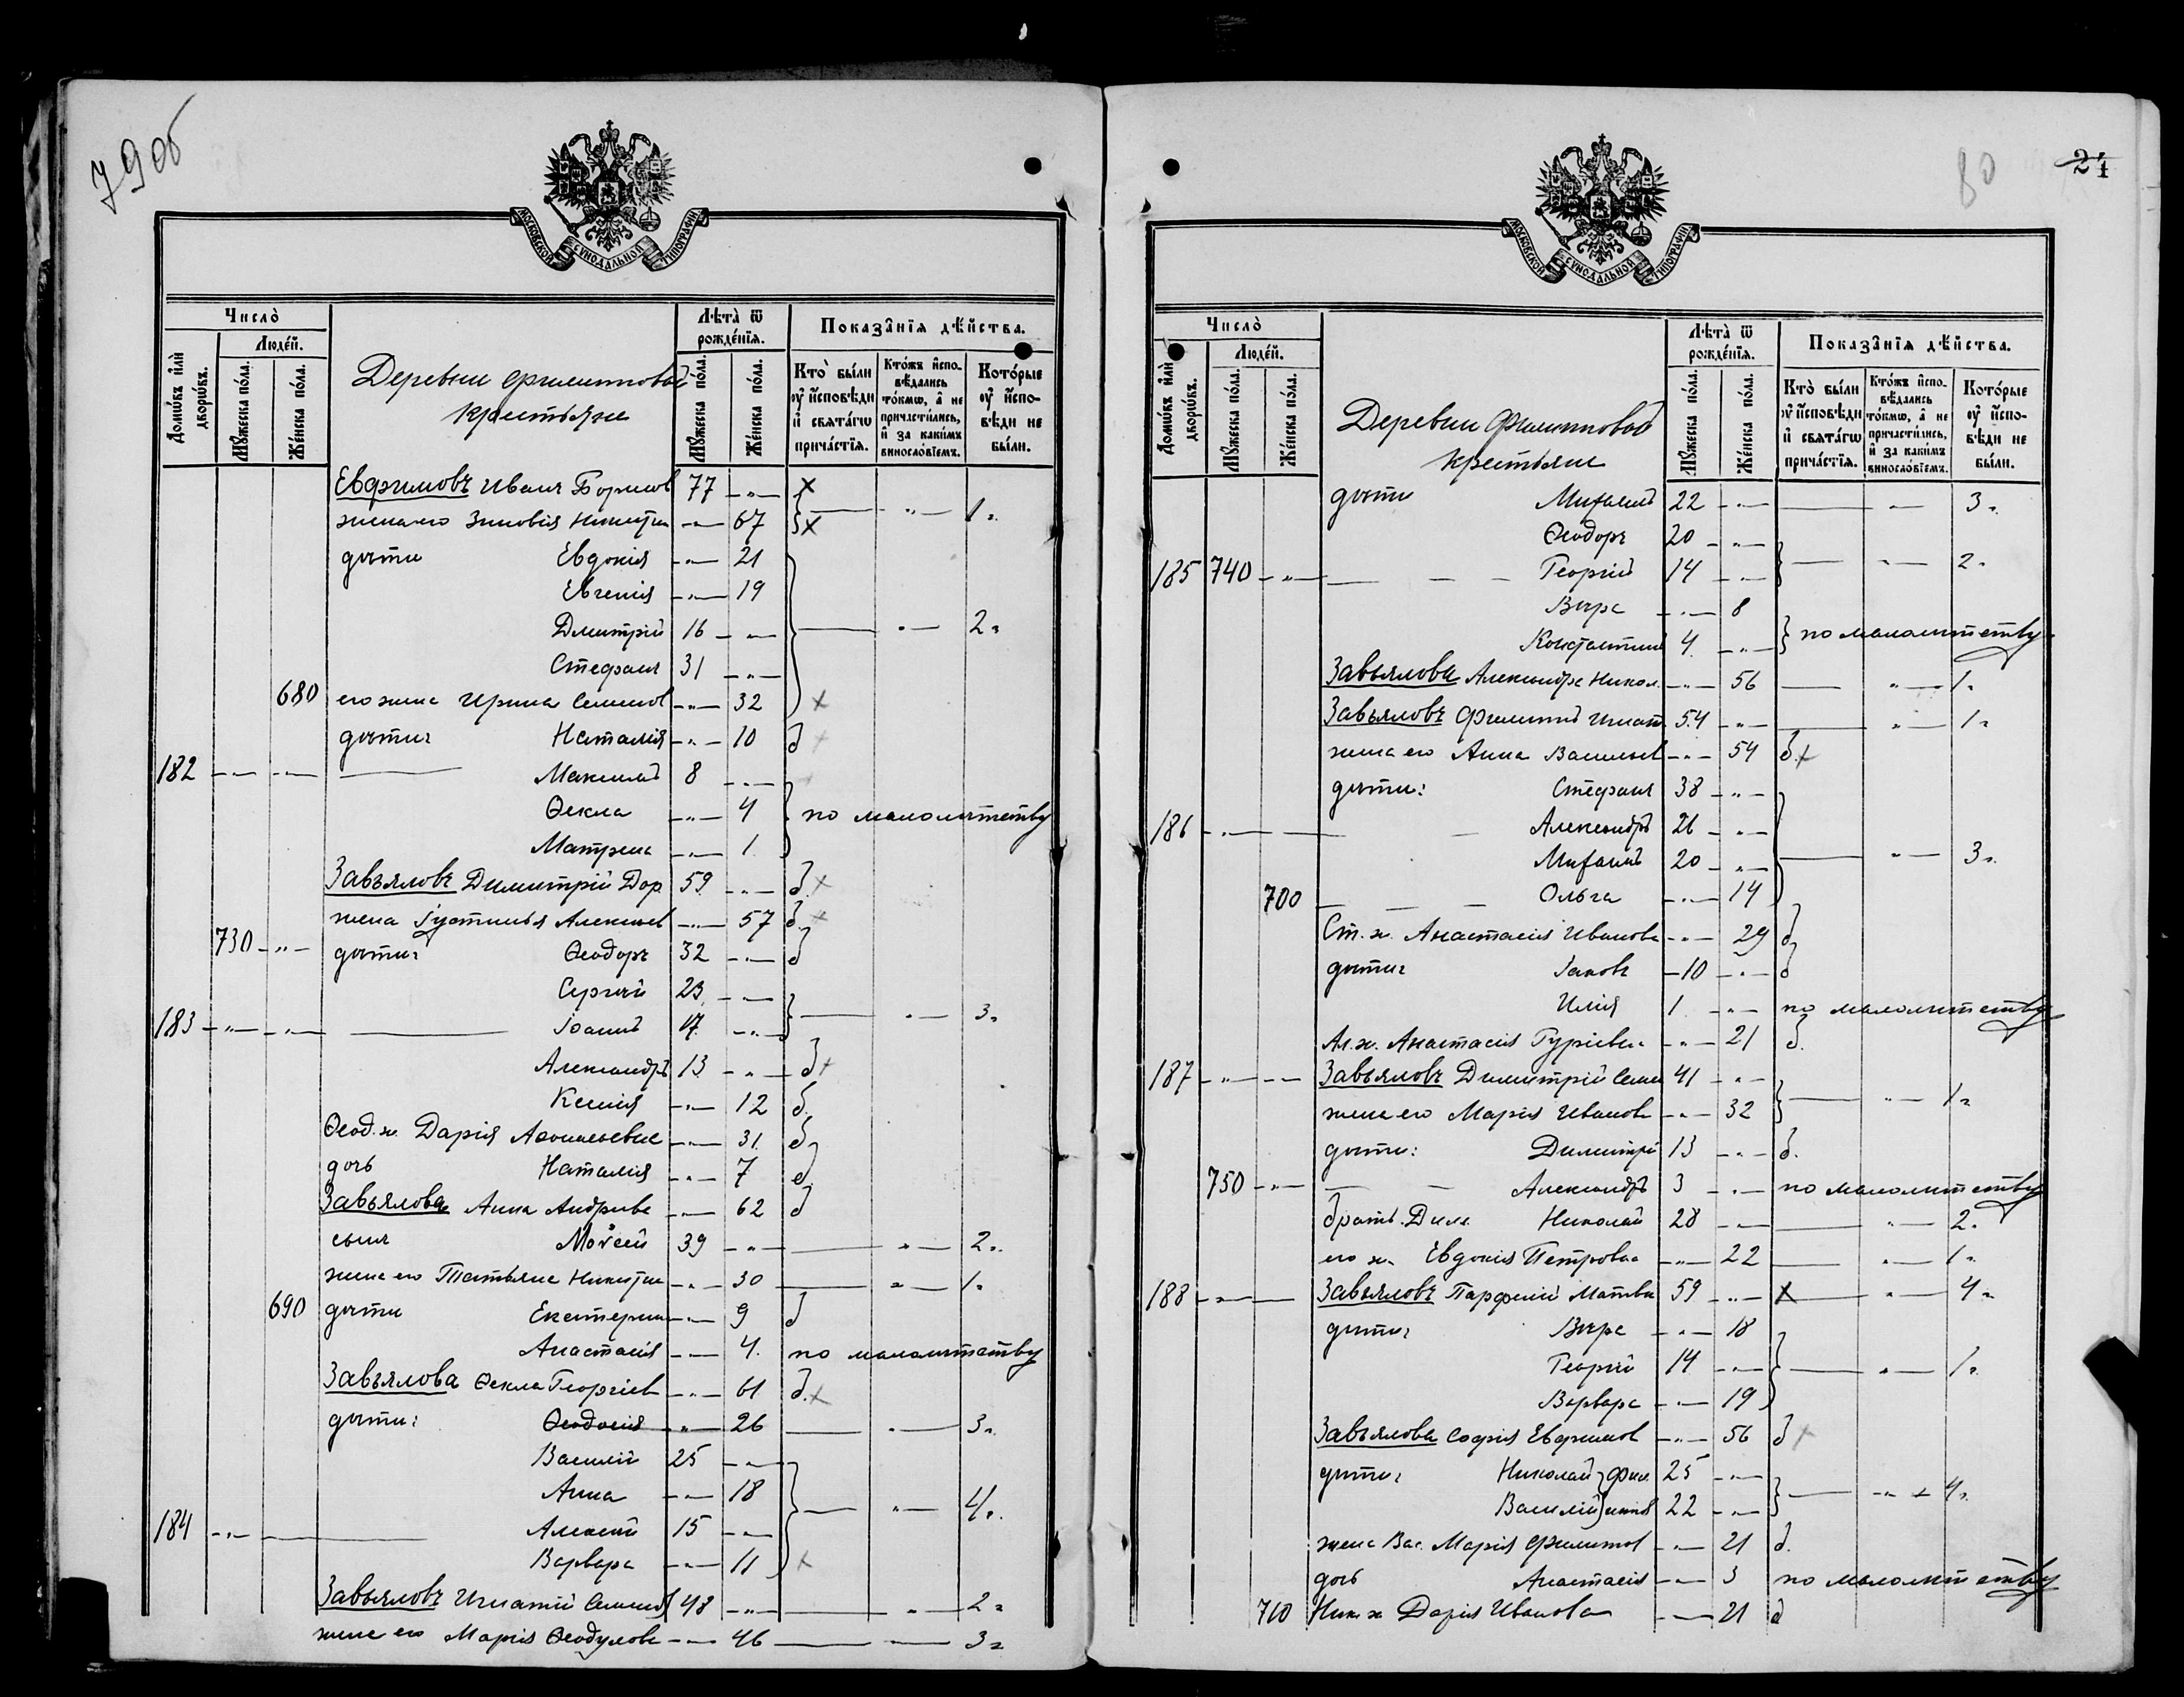 79об
МОСКОВСКОЙ СѴНОДАЛЬНОЙ ТИПОГРАФІИ
Число̀
Домѡ́въ и҆лѝ дворѡ́въ.
Люде́й.
Мꙋ́жеска по́ла.
Же́нска по́ла.
Деревни Филипповой
крестьяне
Лѣта̀ ѿ рожде́нїѧ.
Мꙋ́жеска по́ла.
Же́нска по́ла.
Показа̑нїѧ дѣ́йства.
Кто̀ бы́ли ᲂу҆ и҆сповѣди и҆ свѧта́гѡ прича́стїѧ.
Кто́жъ и҆спо-вѣ́дались то́кмѡ, а҆ не причасти́лись, и҆ за каки́мъ винословїемъ.
Кото́рые ᲂу҆ и҆спо-вѣди не бы́ли.
Евфимовъ Иванъ Борисов 77 -"- х
жена его Зиновія Никитин -"- 67 х -"- 1"
дѣти Евдокія -"- 21
Евгенія -"- 19
Дмитрій 16 -"- -"- 2"
Стефанъ 31 -"-
680 его жена Ирина Семенов -"- 32 х
дѣти: Наталія -"- 10 д
182 -"- -"- Максимъ 8 -"-
Ѳекла -"- 4 по малолѣтству
Матрена -"- 1
Завьяловъ Димитрій Дор 59 -"- д.х
жена Іустинья Алексѣев -"- 57 д.
730 -"- дѣти: Ѳеодоръ 32 -"- д
Сергѣй 23 -"-
183 -"- -"- Іоаннъ 17 -"- -"- 3"
Александръ 13 -"- д
Ксенія -"- 12 д.
Ѳеод. ж. Дарія Аѳанасьевна -"- 31 д
дочь Наталія -"- 7 д
Завьялова Анна Андреев -"- 62 д
сынъ Моѵсей 39 -"- -"- 2"
жена его Татьяна Никитин -"- 30 -"- 1"
690 дѣти Екатерина -"- 9 д
Анастасія -"- 4. по малолѣтству
Завьялова Ѳекла Георгіев -"- 61 д.х
дѣти: Ѳеодосія -"- 26 -"- 3"
Василій 25 -"-
Анна -"- 18 -"- 4"
184 -"- Алексѣй 15 -"-
Варвара -"- 11 х
Завьяловъ Игнатій Семенов 48 -"- -"- 2"
жена его Марія Ѳеодулова -"- 46 -"- 3"
80
24
МОСКОВСКОЙ СѴНОДАЛЬНОЙ ТИПОГРАФІИ
Число̀
Домѡ́въ и҆лѝ дворѡ́въ.
Люде́й.
Мꙋ́жеска по́ла.
Же́нска по́ла.
Деревни Филипповой
крестьяне
Лѣта̀ ѿ рожде́нїѧ.
Мꙋ́жеска по́ла.
Же́нска по́ла.
Показа̑нїѧ дѣ́йства.
Кто̀ бы́ли ᲂу҆ и҆сповѣди и҆ свѧта́гѡ прича́стїѧ.
Кто́жъ и҆спо-вѣ́дались то́кмѡ, а҆ не причасти́лись, и҆ за каки́мъ винословїемъ.
Кото́рые ᲂу҆ и҆спо-вѣди не бы́ли.
дѣти Михаилъ 22 -"- -"- 3"
Ѳеодоръ 20 -"-
185 740 -"- Георгій 14 -"- -"- 2"
Вѣра -"- 8
Константинъ 4 -"- по малолѣтству
Завьялова Александра Никол. -"- 56 -"- 1"
Завьяловъ Филиппъ Игнат. 54 -"- -"- 1"
жена его Анна Васильев -"- 54 д.х
дѣти: Стефанъ 38 -"-
186 -"- Александръ 26 -"-
Михаилъ 20 -"- -"- 3"
700 Ольга -"- 14
Ст. ж. Анастасія Иванова -"- 29 д
дѣти: Іаковъ 10 -"- д
Илія 1 -"- по малолѣтству
Ал. ж. Анастасія Гуріевна -"- 21 д.
187 -"- -"- Завьяловъ Димитрій Семен 41 -"-
жена его Марія Иванова -"- 32 -"- 1"
дѣти: Димитрі 13 -"- д.
750 -"- Александръ 3 -"- по малолѣтству
братъ Дим. Николай 28 -"- -"- 2"
его ж. Евдокія Петрова -"- 22 -"- 1"
188 -"- Завьяловъ Парфеній Матве 59 -"- х -"- 4"
дѣти: Вѣра -"- 18
Георгій 14 -"- -"- 1"
Варвара -"- 19
Завьялова Софія Евфимов -"- 56 д
дѣти: Николай 25 -"-
Василій 22 -"- -"- 4"
жена Вас. Марія Филиппов -"- 21 д.
дочь Анастасія -"- 3 по малолѣтству
710 Ник. ж. Дарія Иванова -"- 21 д